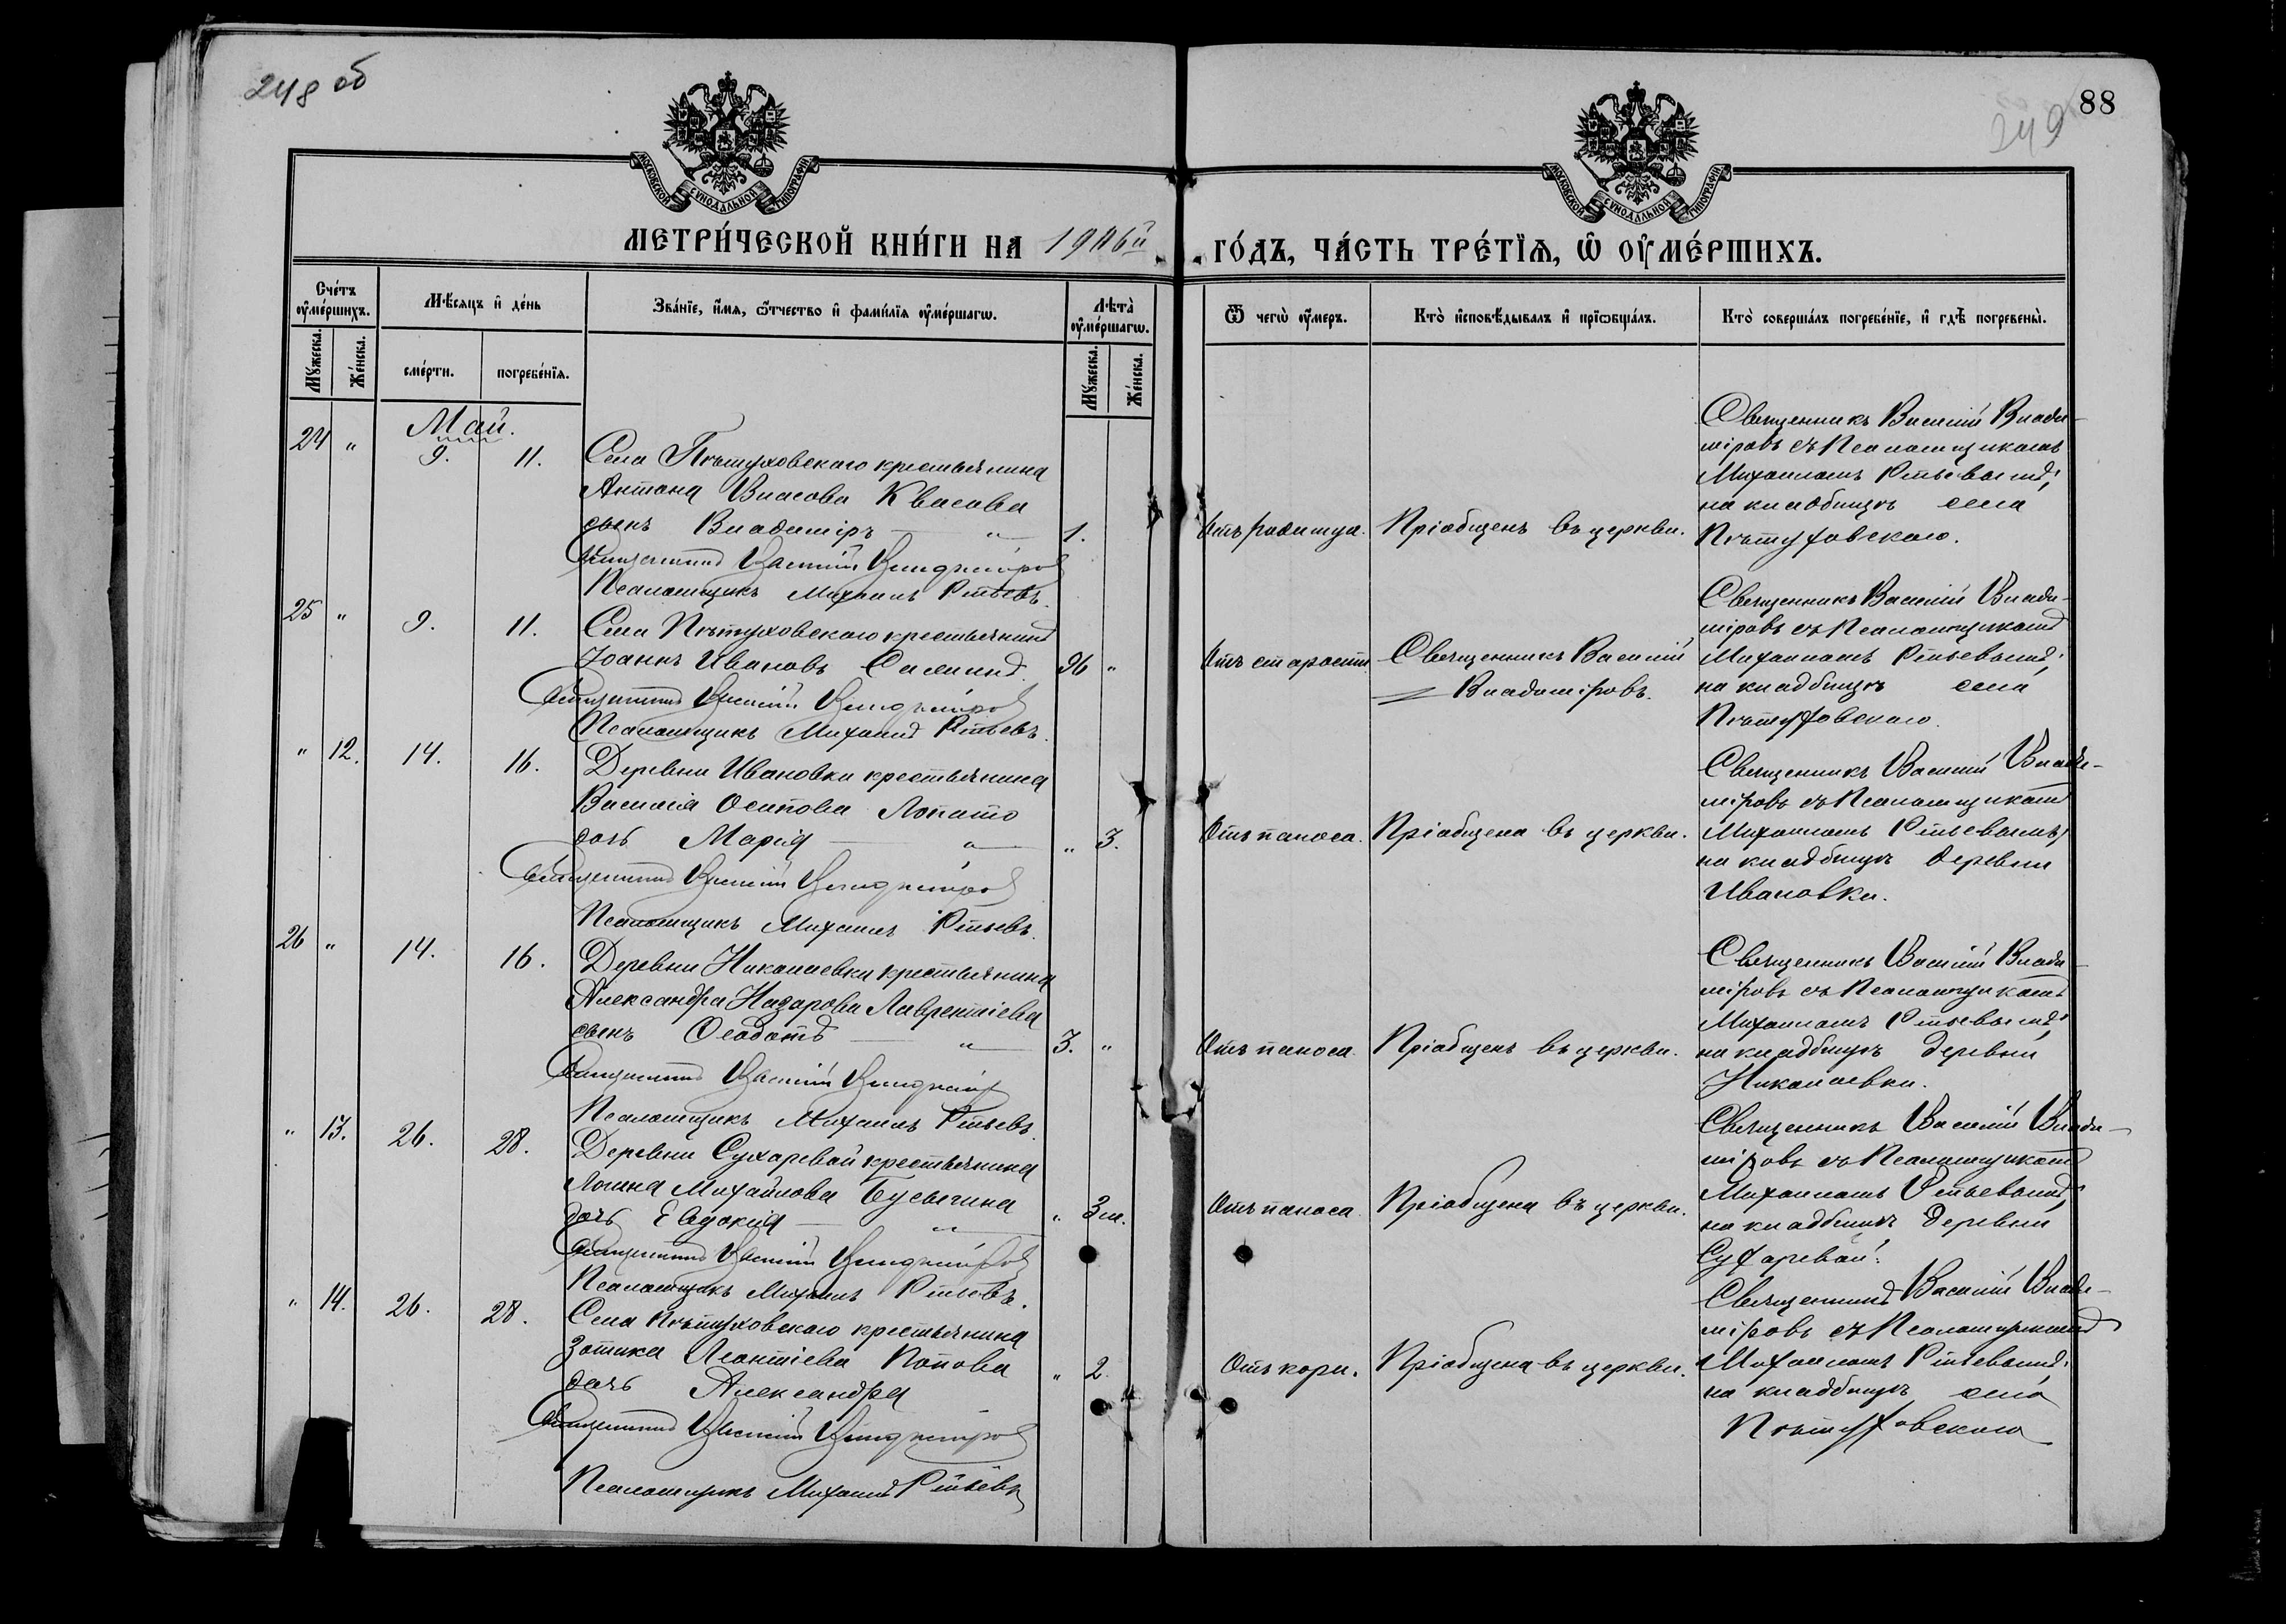 248 об
88
249
МОСКОВСКОЙ СѴНОДАЛЬНОЙ ТИПОГРАФІИ
МОСКОВСКОЙ СѴНОДАЛЬНОЙ ТИПОГРАФІИ
МЕТРИ́ЧЕСКОЙ КНИ́ГИ НА 1906й ГО́ДЪ, ЧА́СТЬ ТРЕ́ТІѦ, Ѡ ОУМЕ́РШИХЪ.
Сче́тъ оуме́ршихъ.
Мꙋжеска.
Же́нска.
Мѣсѧцъ и де́нь
сме́рти.
погребе́нїѧ.
Зва́нїе, и́мѧ, ѻ҆́тчество и фами́лїѧ оуме́ршагѡ.
Лѣта̀ оуме́ршагѡ.
Мꙋжеска.
Же́нска.
Ѿ чегѡ̀ оу́меръ.
Кто̀ и҆сповѣ́дывалъ и҆ прїѡбща́лъ.
Кто̀ соверша́лъ погребе́нїе, и҆ гдѣ̀ погребены̀.
Май.
24 " 9. 11.
Села Пѣтуховскаго крестьянина
Антона Власова Квасова
сынъ Владиміръ — " — 1.
Священникъ Василій Владиміровъ
Псаломщикъ Михаилъ
Отъ родимца.
Пріобщенъ въ церкви.
Священникъ Василій Влади-
міровъ съ Псаломщикомъ
Михаиломъ
на кладбищѣ села
Пѣтуховскаго.
25 " 9. 11.
Села Пѣтуховскаго крестьянинъ
Іоаннъ Ивановъ 96 "
Священникъ Василій Владиміровъ
Псаломщикъ Михаилъ
Отъ старости
Священникъ Василій
Владиміровъ.
Священникъ Василій Влади-
міровъ съ Псаломщикомъ
Михаиломъ
на кладбищѣ села
Пѣтуховскаго.
" 12. 14. 16.
Деревни Ивановки крестьянина
Василія Осипова Лопато
дочь Марія — " — " 3.
Священникъ Василій Владиміровъ
Псаломщикъ Михаилъ
Отъ поноса.
Пріобщена въ церкви.
Священникъ Василій Влади-
міровъ съ Псаломщикомъ
Михаиломъ
на кладбищѣ деревни
Ивановки.
26 " 14. 16.
Деревни Николаевки крестьянина
Александра Назарова Лаврентіева
сынъ Ѳеодотъ — " — 3. "
Священникъ Василій Владиміровъ
Псаломщикъ Михаилъ
Отъ поноса.
Пріобщенъ въ церкви.
Священникъ Василій Влади-
міровъ съ Псаломщикомъ
Михаиломъ
на кладбищѣ деревни
Николаевки.
" 13. 26. 28.
Деревни Сухаревой крестьянина
Михайлова Бусыгина
дочь Евдокія — " — " 3 м.
Священникъ Василій Владиміровъ
Псаломщикъ Михаилъ
Отъ поноса.
Пріобщена въ церкви.
Священникъ Василій Влади-
міровъ съ Псаломщикомъ
Михаиломъ
на кладбищѣ деревни
Сухаревой.
" 14. 26. 28.
Села Пѣтуховскаго крестьянина
Зотика Леонтіева Попова
дочь Александра " 2.
Священникъ Василій Владиміровъ
Псаломщикъ Михаилъ
Отъ кори.
Пріобщена въ церкви.
Священникъ Василій Влади-
міровъ съ Псаломщикомъ
Михаиломъ
на кладбищѣ села
Пѣтуховскаго